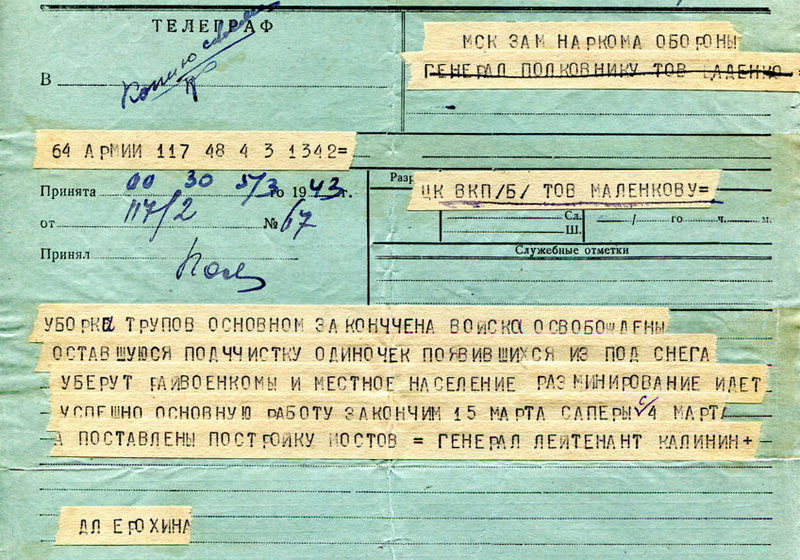 ТЕЛЕГРАФ
Копию
В
МСК ЗАМ НАРКОМА ОБОРОНЫ
ГЕНЕРАЛ ПОЛКОВНИКУ ТОВ ЩАДЕНКО
64 АРМИИ 117 48 4 3 1342=
Принята 00 30 5/3 го 1943 г.
Разр
ЦК ВКП/Б/ ТОВ МАЛЕНКОВУ=
от 117/2 № 67
Сл. / го ч. м.
Ш.
Принял
Служебные отметки
УБОРКА ТРУПОВ ОСНОВНОМ ЗАКОНЧЧЕНА ВОЙСКА ОСВОБОЖДЕНЫ
ОСТАВШУЮСЯ ПОДЧЧИСТКУ ОДИНОЧЕК ПОЯВИВШИХСЯ ИЗ ПОД СНЕГА
УБЕРУТ РАЙВОЕНКОМЫ И МЕСТНОЕ НАСЕЛЕНИЕ РАЗМИНИРОВАНИЕ ИДЕТ
УСПЕШНО ОСНОВНУЮ РАБОТУ ЗАКОНЧИМ 15 МАРТА САПЕРЫ С 4 МАРТА
А ПОСТАВЛЕНЫ ПОСТРОЙКУ МОСТОВ = ГЕНЕРАЛ ЛЕЙТЕНАНТ КАЛИНИН+
ДЛ ЕРОХИНА